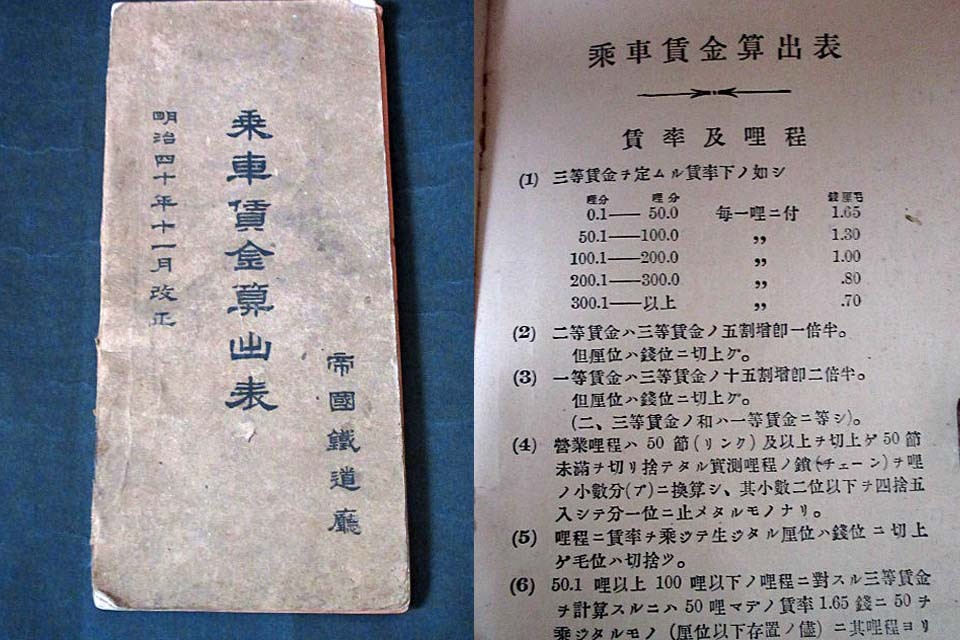 乗車賃金算出表
明治四十年十一月改正
帝國鐵道廳
乗車賃金算出表
賃率及哩程
(1) 三等賃金ヲ定ムル賃率下ノ如シ
哩分 哩分 錢厘毛
0.1—— 50.0 每一哩ニ付 1.65
50.1——100.0 〃 1.30
100.1——200.0 〃 1.00
200.1——300.0 〃 .80
300.1——以上 〃 .70
(2) 二等賃金ハ三等賃金ノ五割增卽一倍半。
但厘位ハ錢位ニ切上ゲ。
(3) 一等賃金ハ三等賃金ノ十五割增卽二倍半。
但厘位ハ錢位ニ切上ゲ。
(二、三等賃金ノ和ハ一等賃金ニ等シ)。
(4) 營業哩程ハ 50 節(リンク)及以上ヲ切上ゲ 50 節
未滿ヲ切リ捨テタル實測哩程ノ鎖(チェーン)ヲ哩
ノ小數分(ブ)ニ換算シ、其小數二位以下ヲ四捨五
入シテ分一位ニ止メタルモノナリ。
(5) 哩程ニ賃率ヲ乘ジテ生ジタル厘位ハ錢位ニ切上
ゲ毛位ハ切捨ツ。
(6) 50.1 哩以上 100 哩以下ノ哩程ニ對スル三等賃金
ヲ計算スルニハ 50 哩マデノ賃率 1.65 錢ニ 50 ヲ
乘ジタルモノ(厘位以下存置ノ儘)ニ其哩程ヨリ